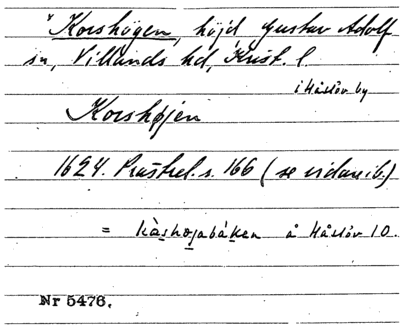 "Korshögen, höjd Gustav Adolf
sn, Villands hd, Krist. l.
i Håslöv by
Korshøjen
1624. Prästrel. s. 166 (se vidare ib.)
= kàshøjabáken å Håslöv 10.
Nr 5476.